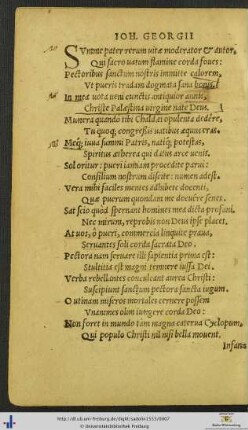 IOH. GEORGII
SVmme pater rerum vitæ moderator & autor,
Qui sacro vatum flamine corda foves:
Pectoribus sanctum nostris immitte calorem,
Ut pueris tradam dogmata sana
In me vota veni cunctis antiquior annis,
Christe Palæstina virgine nate Deus.
Munera quando tibi Chaldæi opulenta dedêre,
Tu quoque congressis vatibus æquus eras.
Meque iuva summi Patris, natique potestas,
Spiritus ætherea qui datus arce venit.
Sol oritur: pueri ludum procedite parvi:
Consilium nostrum discite: numen adest.
Vera mihi faciles mentes adhibete docenti,
Quæ puerum quondam me docuêre senes.
Sat scio quod spernant homines mea dicta profani.
Nec mirum, reprobis non Deus ipse placet.
At vos, ô pueri, commercia linquite prava,
Servantes soli corda sacrata Deo:
Pectora nam servare illi sapientia prima est:
Stultitia est magni temnere iussa Dei.
Verba rebellantes conculcant aurea Christi:
Suscipiunt sanctum pectora sancta iugum.
O utinam miseros mortales cernere possem
Unanimes olim iungere corda Deo:
Non foret in mundo tam magna caterva Cyclopum,
Qui populo Christi nil nisi bella movent.
Insana
http://dl.ub.uni-freiburg.de/diglit/
© Universitätsbibliothek Freiburg